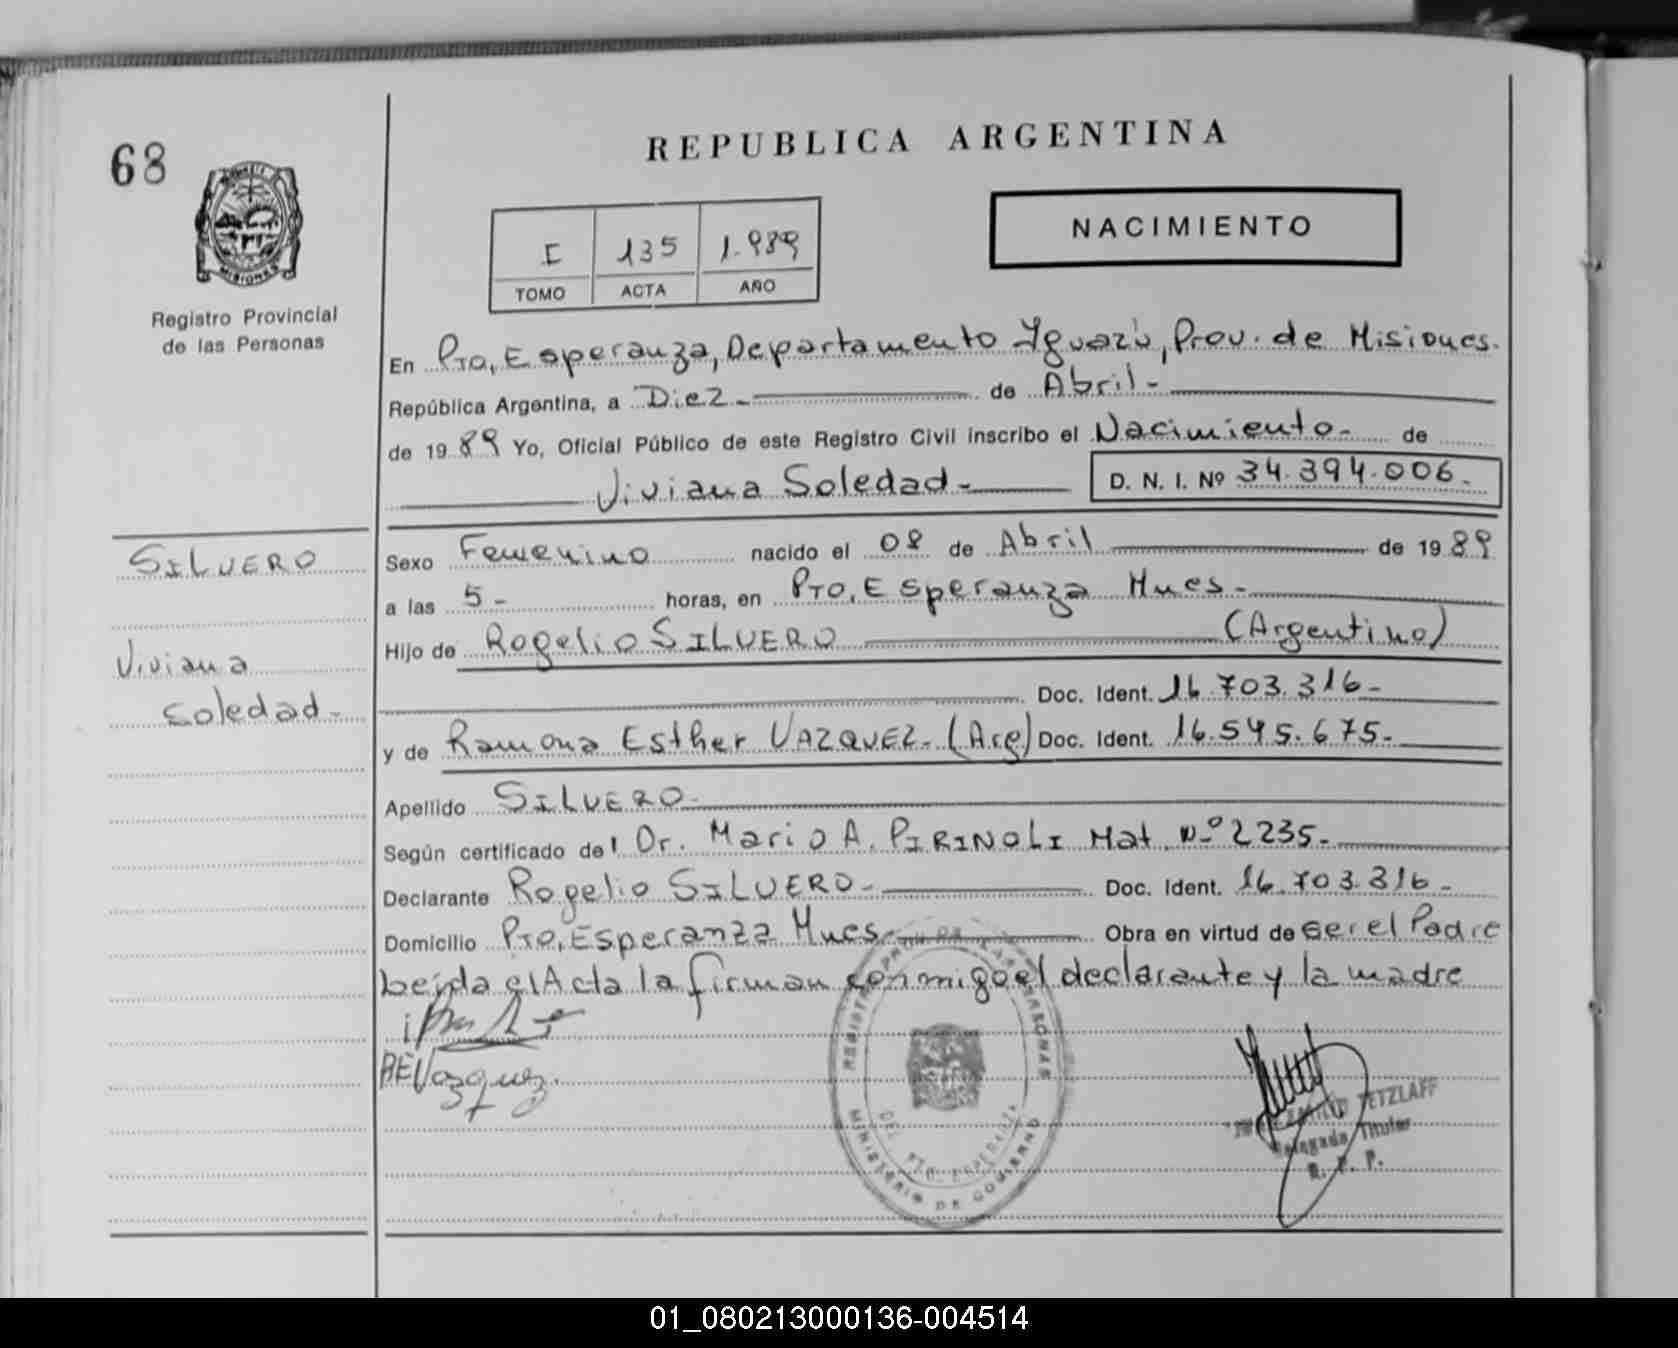 68
REPUBLICA ARGENTINA
NACIMIENTO
I 135 1.989
TOMO ACTA AÑO
MISIONES
Registro Provincial
de las Personas
En Pto, Esperanza, Departamento Yguazú, Prov. de Misiones.
República Argentina, a Diez.- de Abril.-
de 1989 Yo, Oficial Público de este Registro Civil inscribo el Nacimiento.- de
Viviana Soledad.- D. N. I. Nº 34.394.006.-
SILVERO
Viviana
Soledad.-
Sexo Femenino nacido el 08 de Abril de 1989
a las 5.- horas, en Pto, Esperanza Mnes.-
Hijo de Rogelio SILVERO (Argentino)
Doc. Ident. 16.703.316.-
y de Ramona Esther VAZQUEZ.- (Arg) Doc. Ident. 16.545.675.-
Apellido SILVERO.-
Según certificado del Dr. Mario A. PIRINOLI Mat. Nº 2235.-
Declarante Rogelio SILVERO.- Doc. Ident. 16.703.316.-
Domicilio Pto, Esperanza Mnes.- Obra en virtud de ser el Padre
Leída el Acta la firman conmigo el declarante y la madre
RE Vazquez.
REGISTRO PROV. DE LAS PERSONAS
DEL PTO. ESPERANZA
MINISTERIO DE GOBIERNO
TETZLAFF
Delegado Titular
R. P. P.
01_080213000136-004514